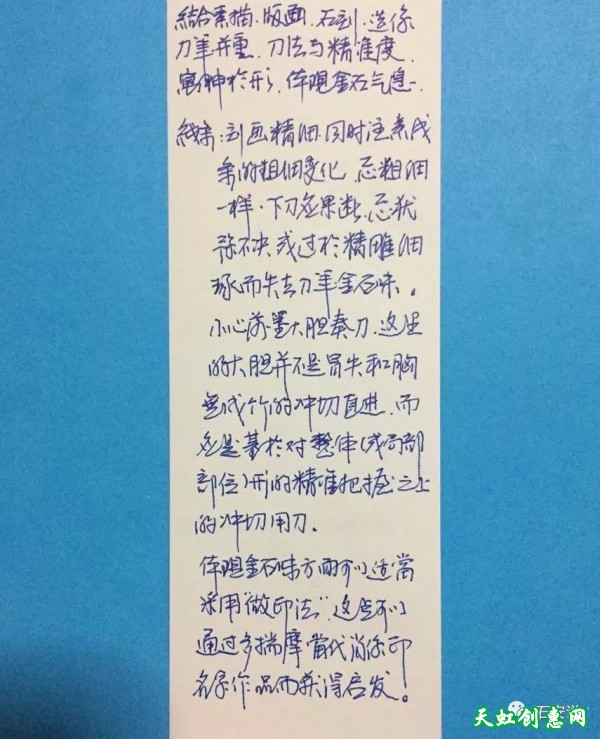 結合素描、版画、石刻、造像
刀筆并重、刀法与精准度、
寓神於形、体現金石气息。
线条：刻画精细、同时注意线
条的粗细变化、忌粗细
一样、下刀应果断、忌犹
疑不决或过於精雕细
琢而失去刀筆金石味。
小心落墨大胆奏刀、这里
的大胆并不是冒失和胸
無成竹的冲切直进、而
应是基於对整体(或局部
部位)形的精准把握之上
的冲切用刀。
体現金石味方面可以适當
采用“做印法”、这点可以
通过多揣摩當代肖像印
名家作品而获得启发。
天虹创意网